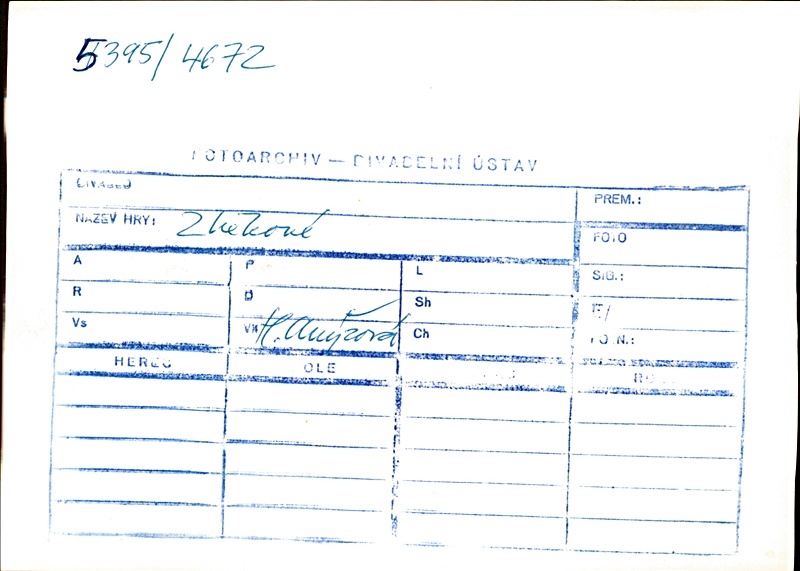 5395/4672
FOTOARCHIV — DIVADELNÍ ÚSTAV
DIVADLO PREM.:
NÁZEV HRY: FOTO
A P L SIG.:
R D Sh F/
Vs VK H. Anýžová Ch FO.N.:
HEREC ROLE